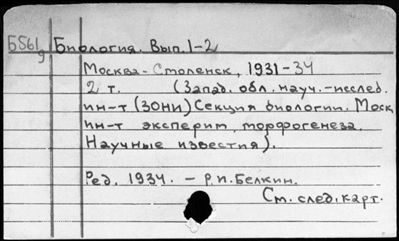 Б561
9
Биология. Вып. 1-2
Москва-Смоленск, 1931-34
2 т. (Запад. обл. науч.-исслед.
ин-т (ЗОНИ) Секция биологии. Моск
ин-т эксперим. морфогенеза.
Научные известия).
Ред. 1934. - Р.И. Белкин.
См. след. карт.